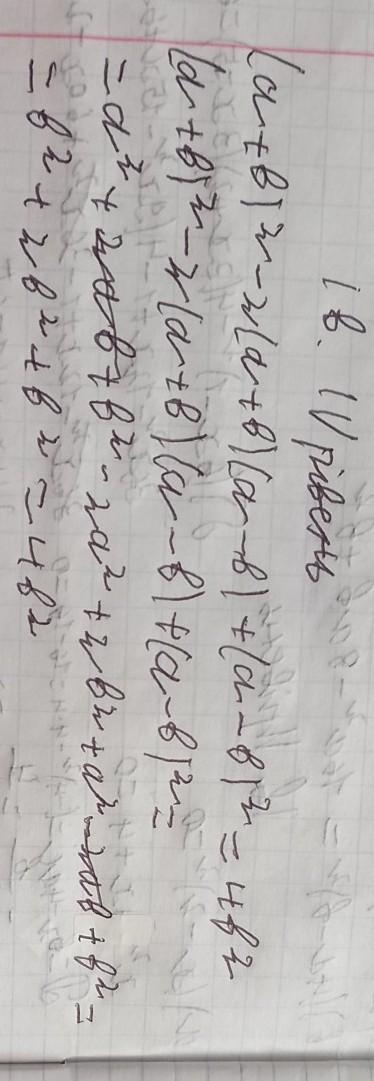 І в. IV рівень
(a+b)² - 2(a+b)(a-b) + (a-b)² = 4b²
(a+b)² - 2(a+b)(a-b) + (a-b)² =
= a² + 2ab + b² - 2a² + 2b² + a² - 2ab + b² =
= b² + 2b² + b² = 4b²